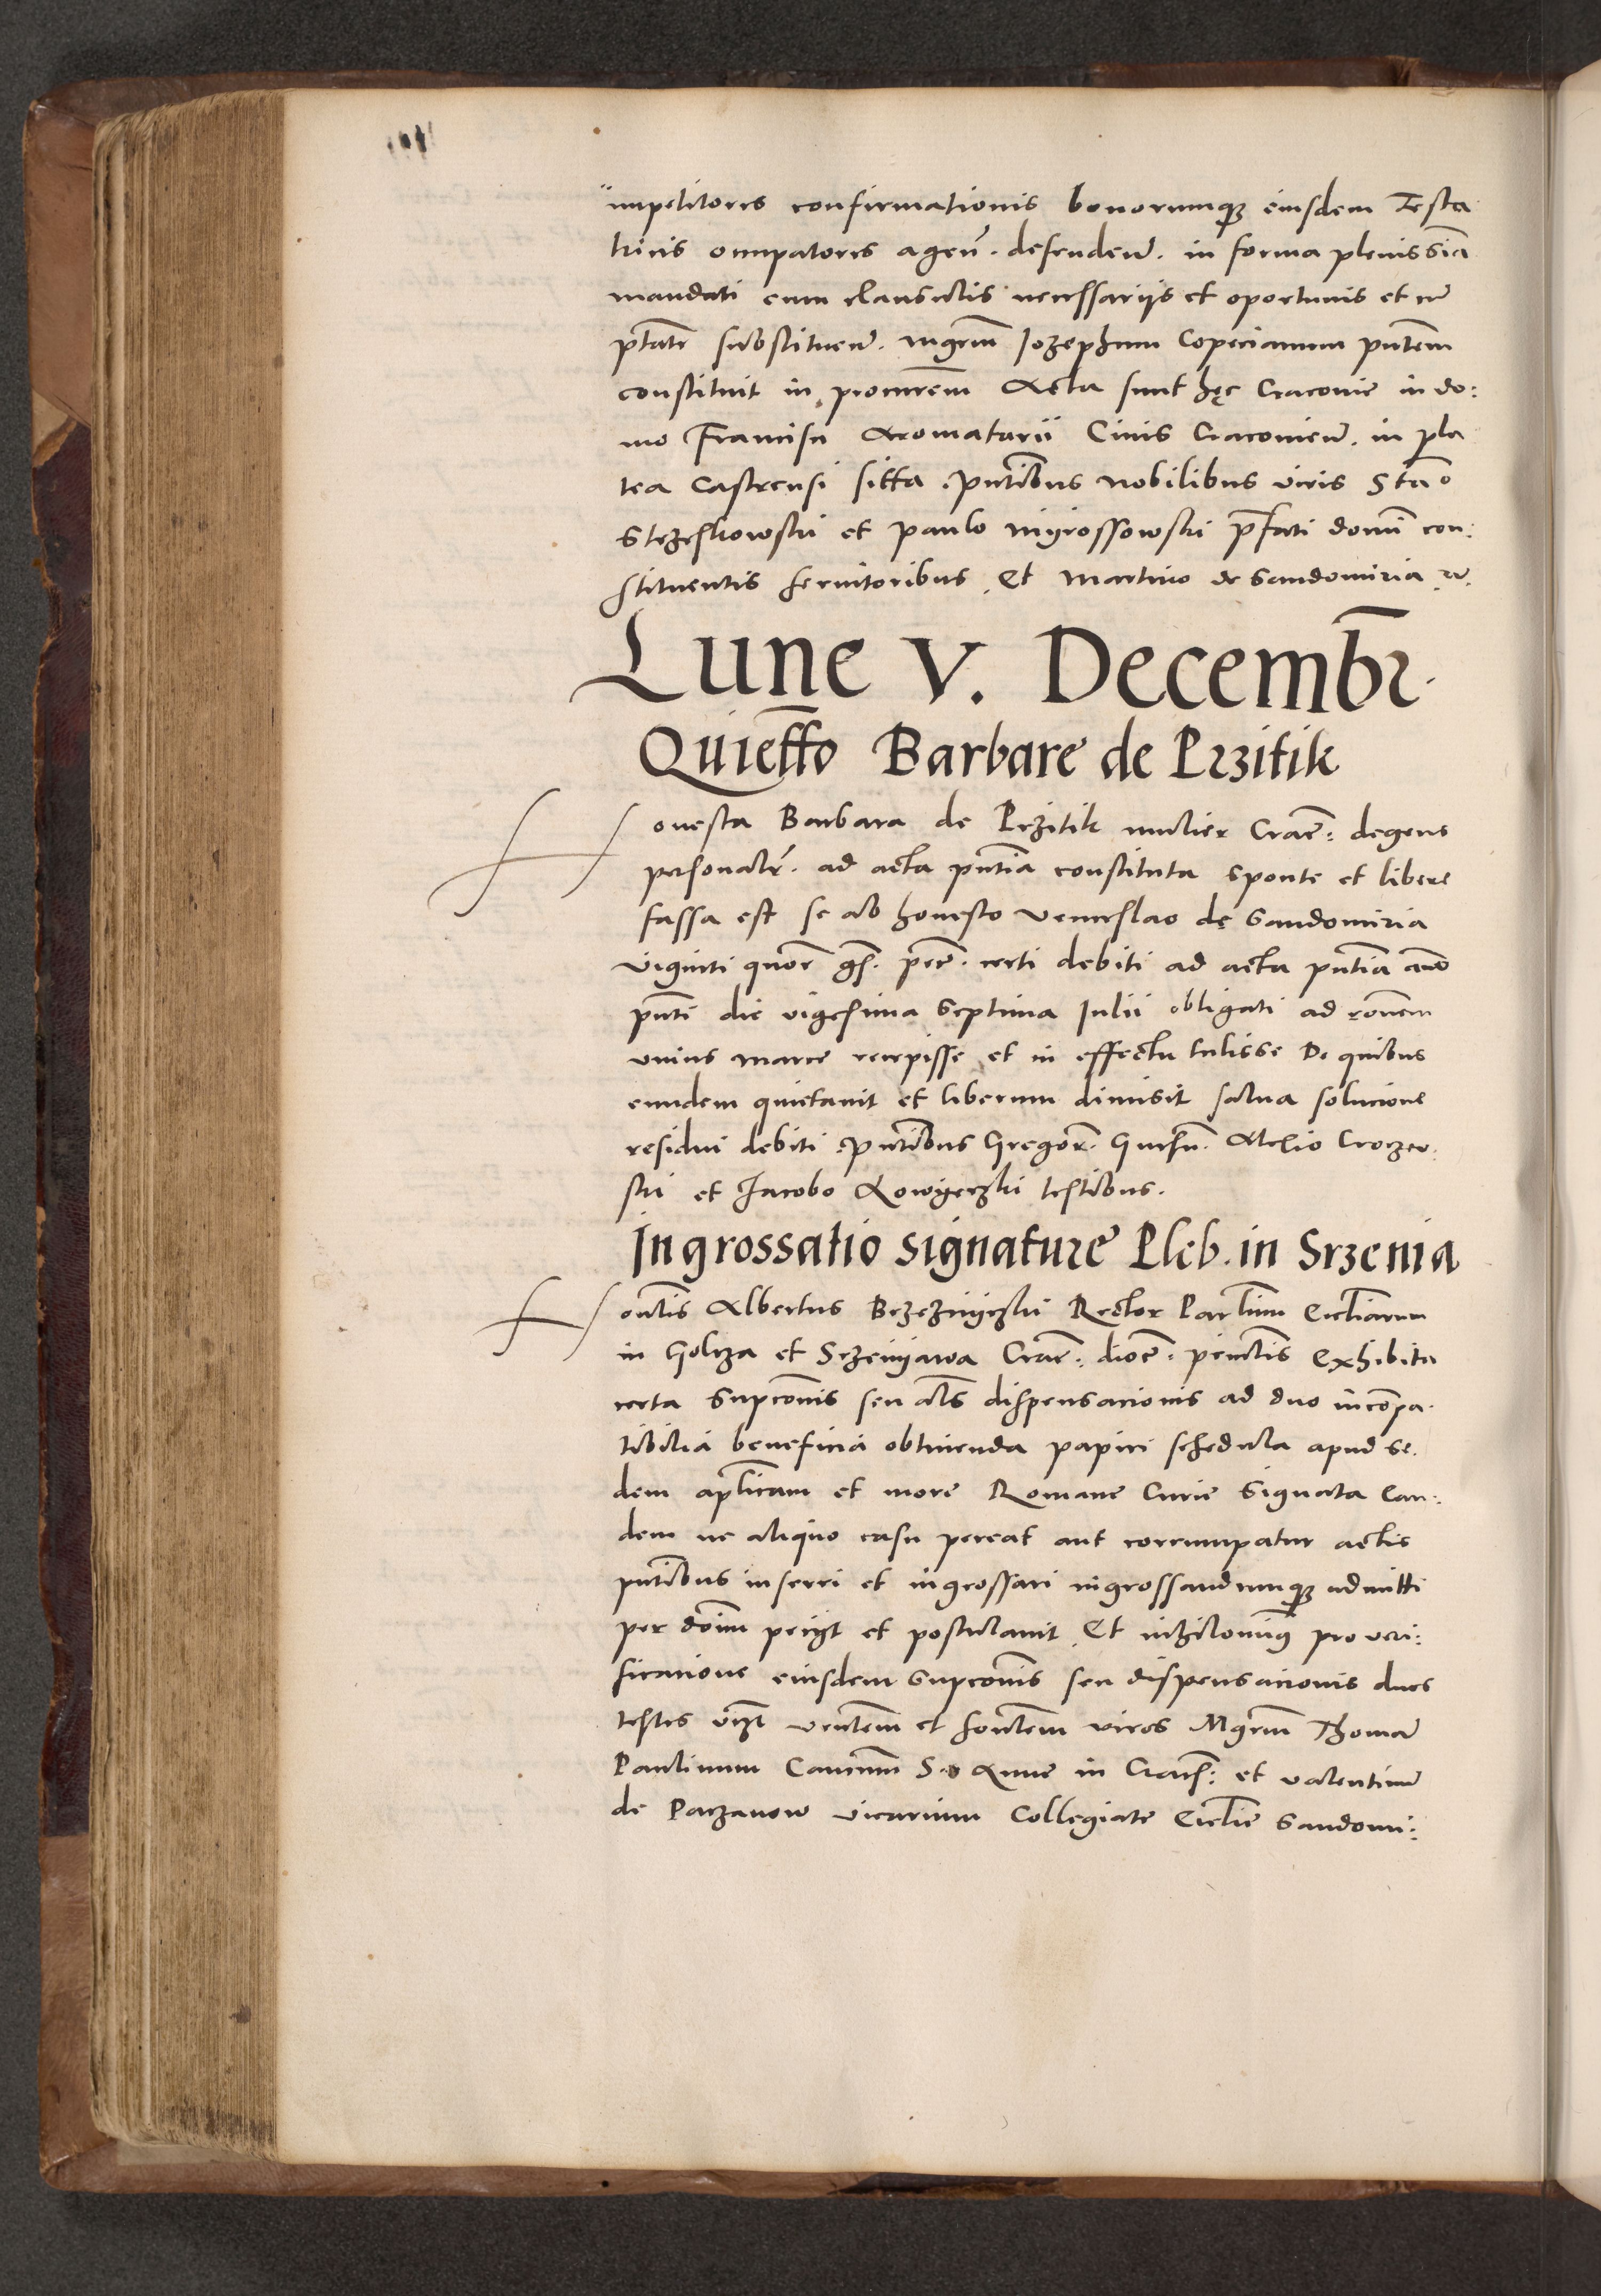 impetitores confirmationis bonorumq₃ eiusdem Testa
tricis occupatores agen̄. defendeñ. in forma plenissīa
mandati cum clausulis necessariis et oportunis et cū
p̄tate substitueñ. mgrm̄ Jozephum Copecianum pn̄tem
constituit in procurem̄ Acta sunt hęc Cracovie in do:
mo Francisci Aromatarii Civis Cracovieñ. in pla
tea Castrensi sitta, pn̄tibus nobilibus viris Stāo
Strzeskowski et paulo mijrossowski p̄fati domī con:
stituentis servitoribus, Et martino de Sandomiria
Lune V. Decembr̄.
Quiet̄to Barbare de Przitik
Honesta Barbara de Przitik mulier Crac̄: degens
personalr̄. ad acta pn̄tia constituta sponte et libere
fassa est se ab honesto venceslao dę Sandomiria
viginti quor̄ gs̄. pec̄. certi debiti ad acta pn̄tia anno
pn̄ti die vigesima septima Julii obligati ad ronem̄
unius marce recepisse et in effectu tulisse De quibus
eundem quietavit et liberum dimisit salva solucione
residui debiti, pn̄tibus Gregor̄. Alexio Croczew:
ski et Jacobo Lowyeczki testibus.
Ingrossatio signature Pleb. in Srzenia
Honl̄is Albertus Brzeznijczki Rector Parl̄ium Eccl̄iarum
in Golcza et Srzenijawa Crac̄: dioc̄: exhibita
certa supcon̄is seu al̄s dispensacionis ad duo incōpa:
tibilia beneficia obtinenda papiri schedula apud se:
dem apl̄icam et more Romane Curie signata Ean:
dem ne aliquo casu pereat aut corrumpatur actis
pn̄tibus inserri et ingrossari ingrossandumq₃ admitti
per dōm̄ pecijt et postulavit, Et nihilomin̄ pro veri:
ficacione eiusdem supcon̄is seu dispensacionis duos
testes viz̄t et viros Mgrm̄ Thomā
Paulinum Canc̄um S. Anne in Crac̄: et valentinū
de Paczanow vicarium Collegiate Eccl̄ie Sandomi: